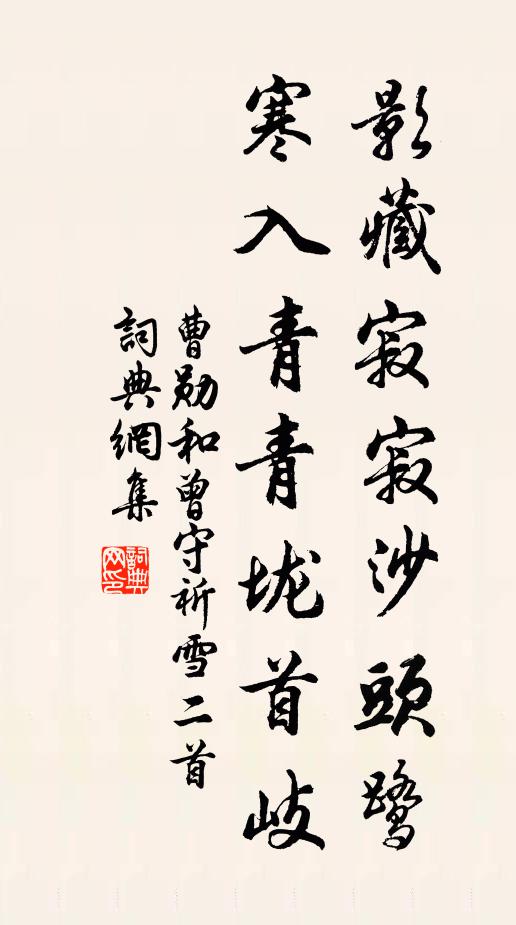 影藏寂寂沙頭鹭
寒入青青垅首岐
曹勋和曾守祈雪二首
詞典網集
詞典网印